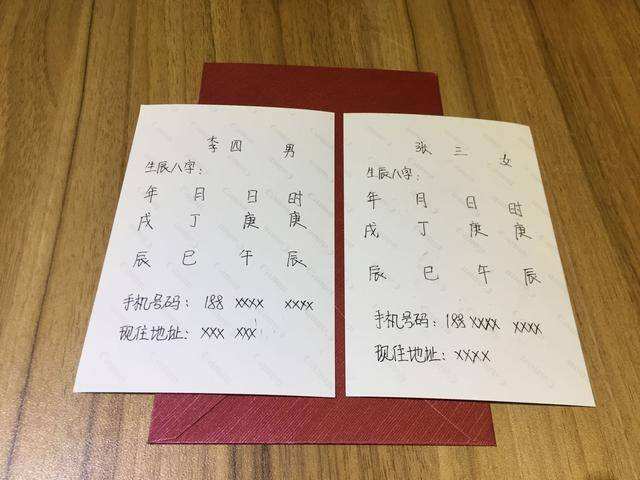 李四 男
生辰八字：
年 月 日 时
戌 丁 庚 庚
辰 巳 午 辰
手机号码：188 xxxx xxxx
现住地址：xxx xxx
张 三 女
生辰八字：
年 月 日 时
戌 丁 庚 庚
辰 巳 午 辰
手机号码：188 xxxx xxxx
现住地址：xxxx